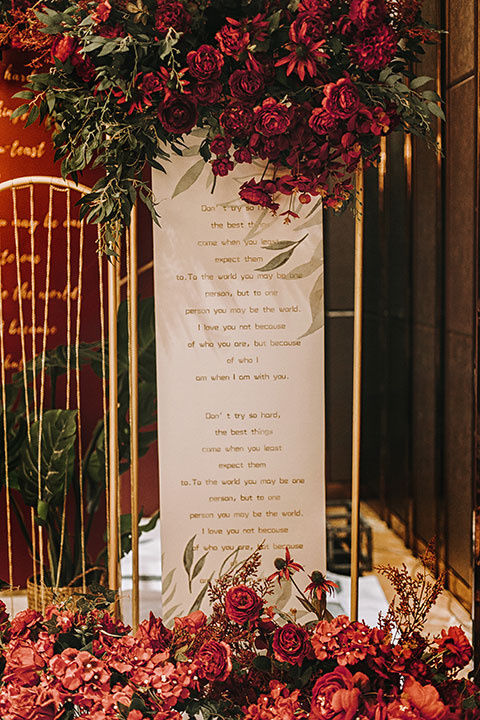 Don't try so hard,
the best things
come when you least
expect them
to.To the world you may be one
person, but to one
person you may be the world.
I love you not because
of who you are, but because
of who I
am when I am with you.
Don't try so hard,
the best things
come when you least
expect them
to.To the world you may be one
person, but to one
person you may be the world.
I love you not because
of who you are, but because